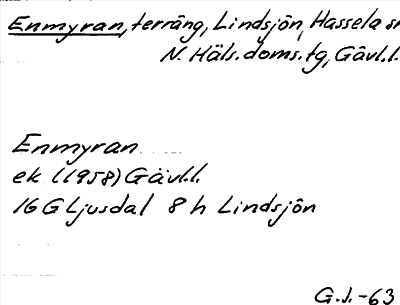 Enmyran, terräng, Lindsjön, Hassela sn
N. Häls. doms. tg, Gävl.l.
Enmyran
ek (1958) Gävl.l.
16 G Ljusdal 8 h Lindsjön
G.I.-63